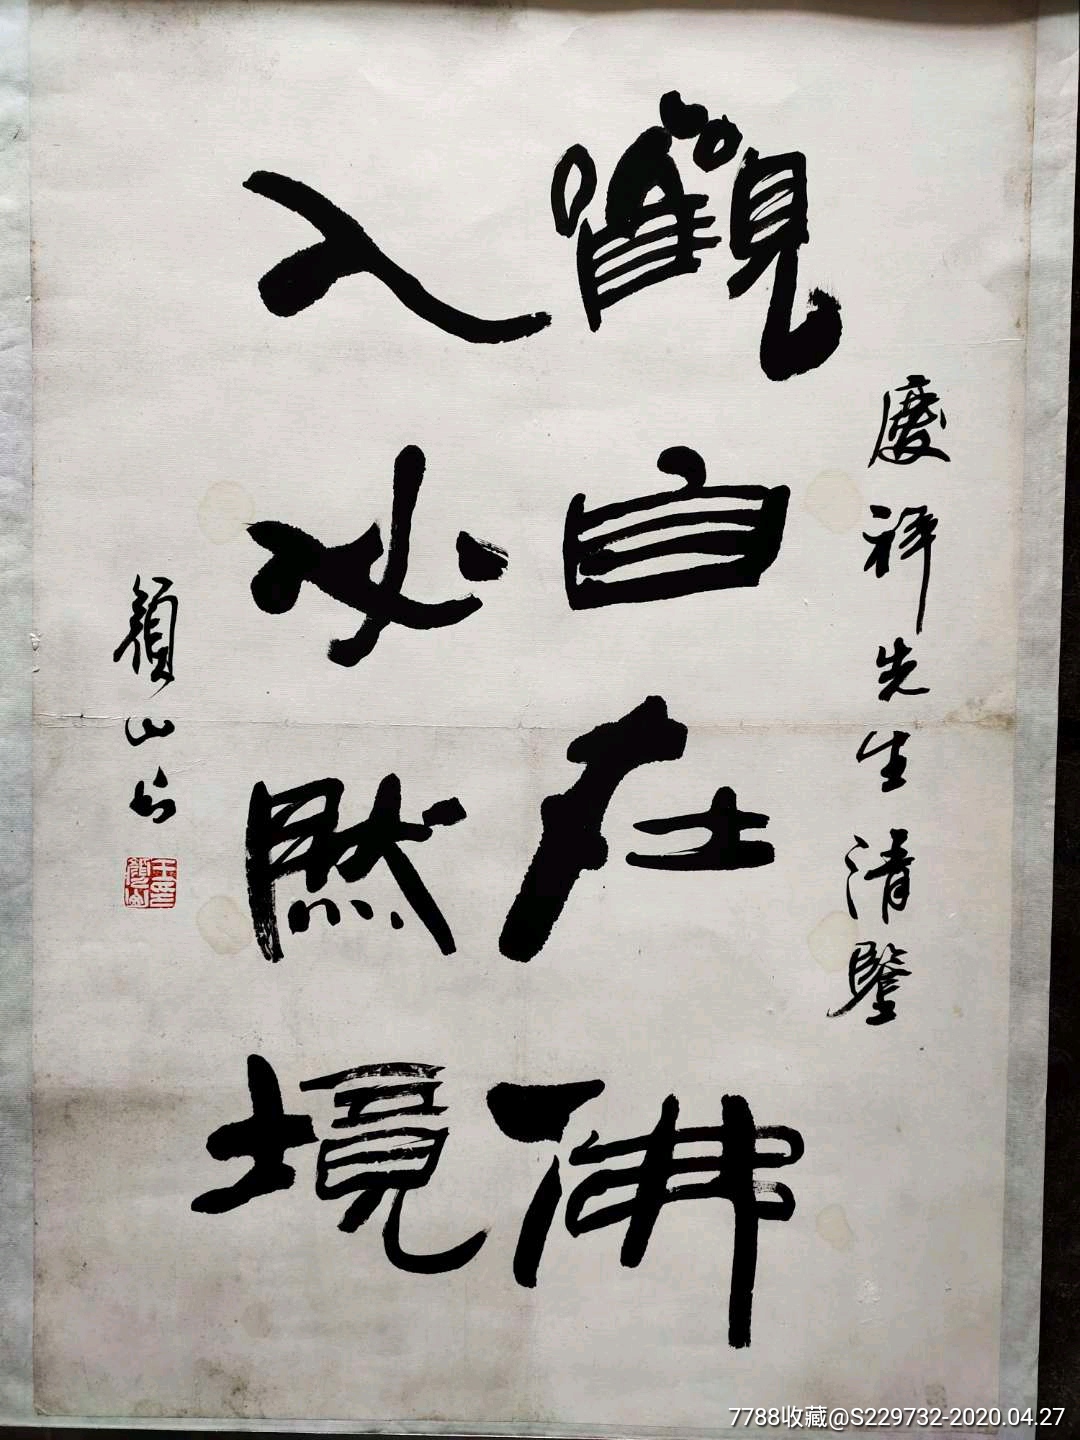 慶祥先生清鑒
觀自在佛
入必然境
顏山书
7788收藏@S229732-2020.04.27